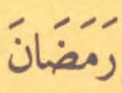 رَمَضَانَ